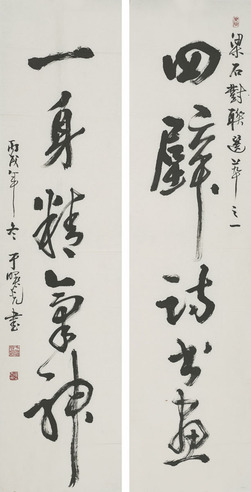 梁石對聯選萃之一
四壁詩書畫
一身精氣神
丙戌年冬于曙光書